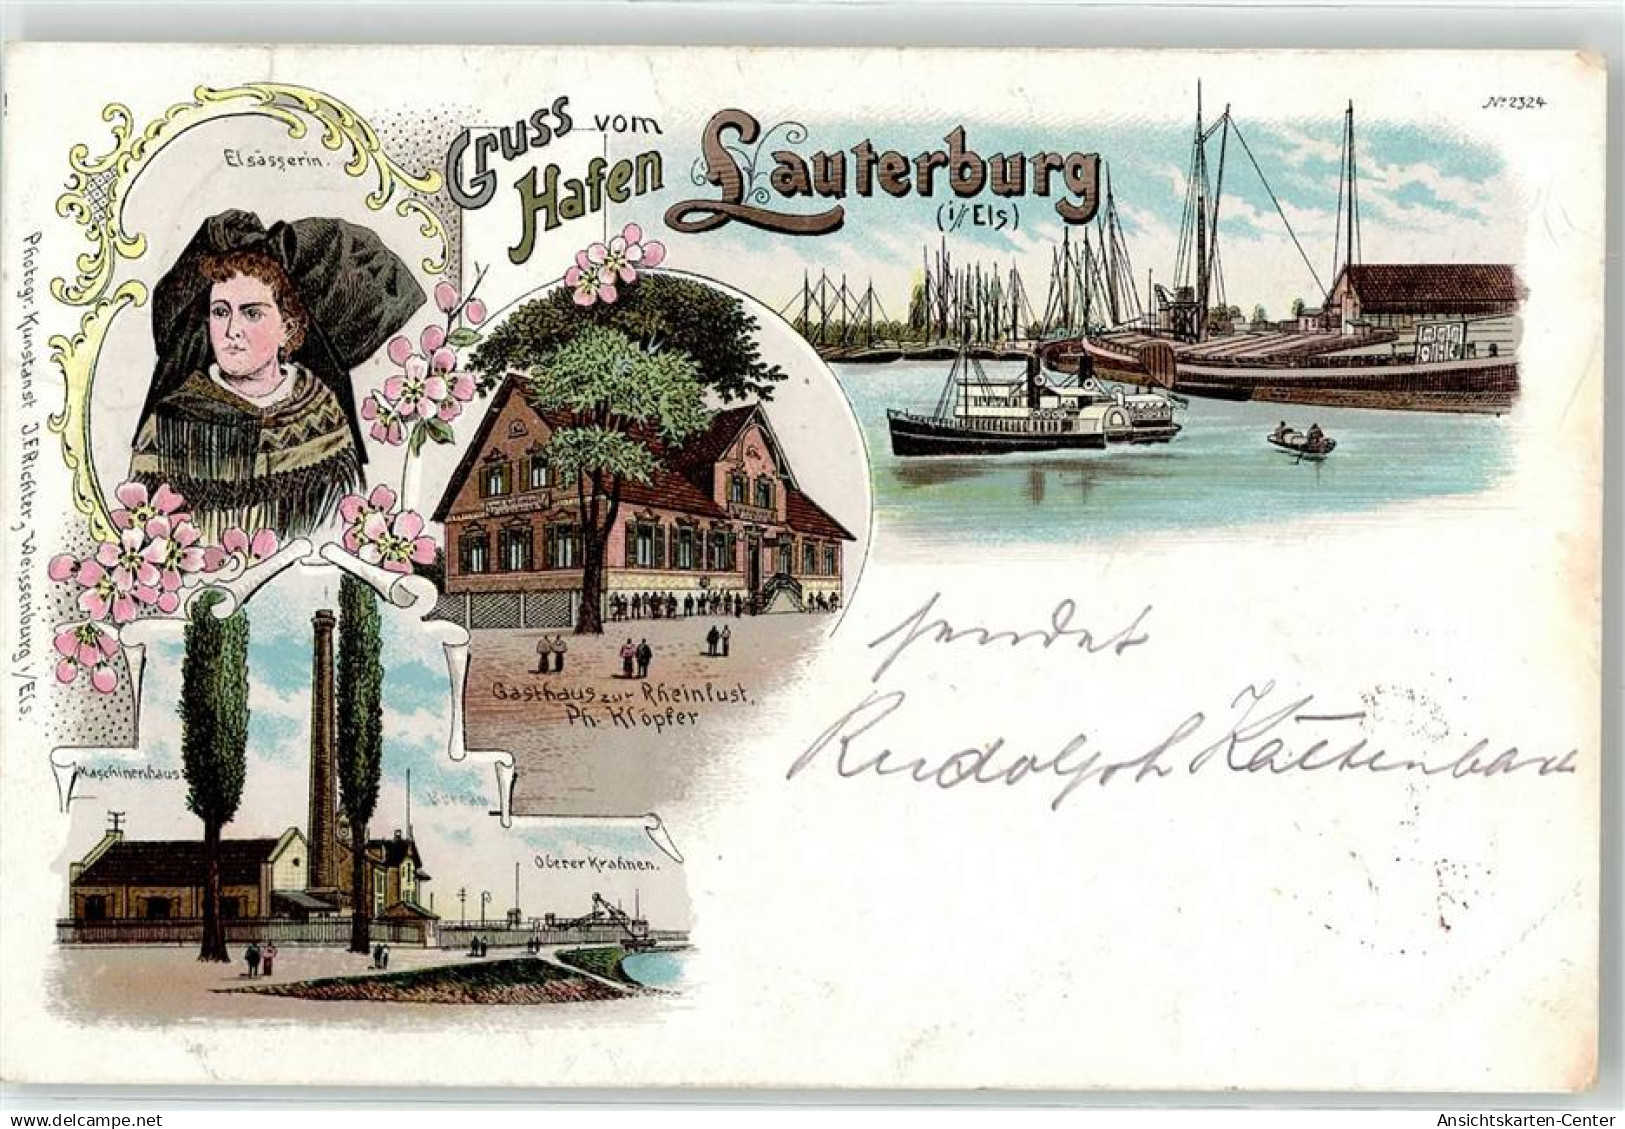 Nº 2324
Gruss vom
Hafen Lauterburg
(i// Els)
Elsässerin.
Gasthaus zur Rheinlust,
Ph. Klöpfer
Maschinenhaus
Bureau
Oberer Krahnen.
Photogr. Kunstanst J.E.Richter, Weissenburg i/Els.
sendet
Rudolph
Ansichtskarten-Center